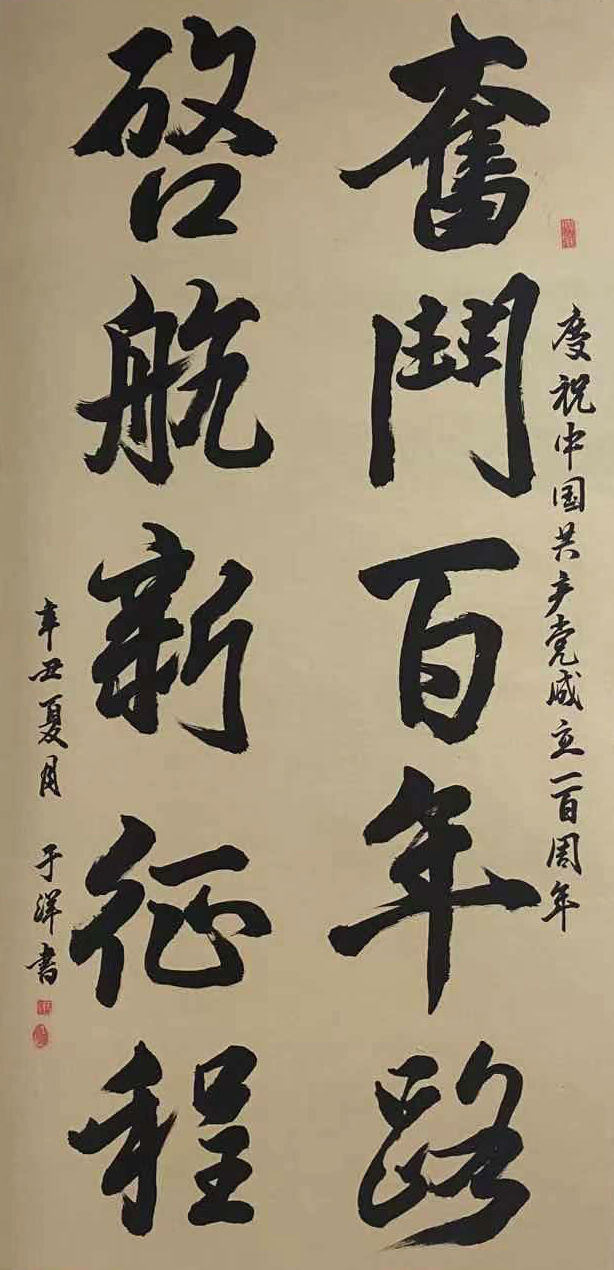 慶祝中国共产党成立一百周年
奮鬥百年路
啓航新征程
辛丑夏月 于洋書